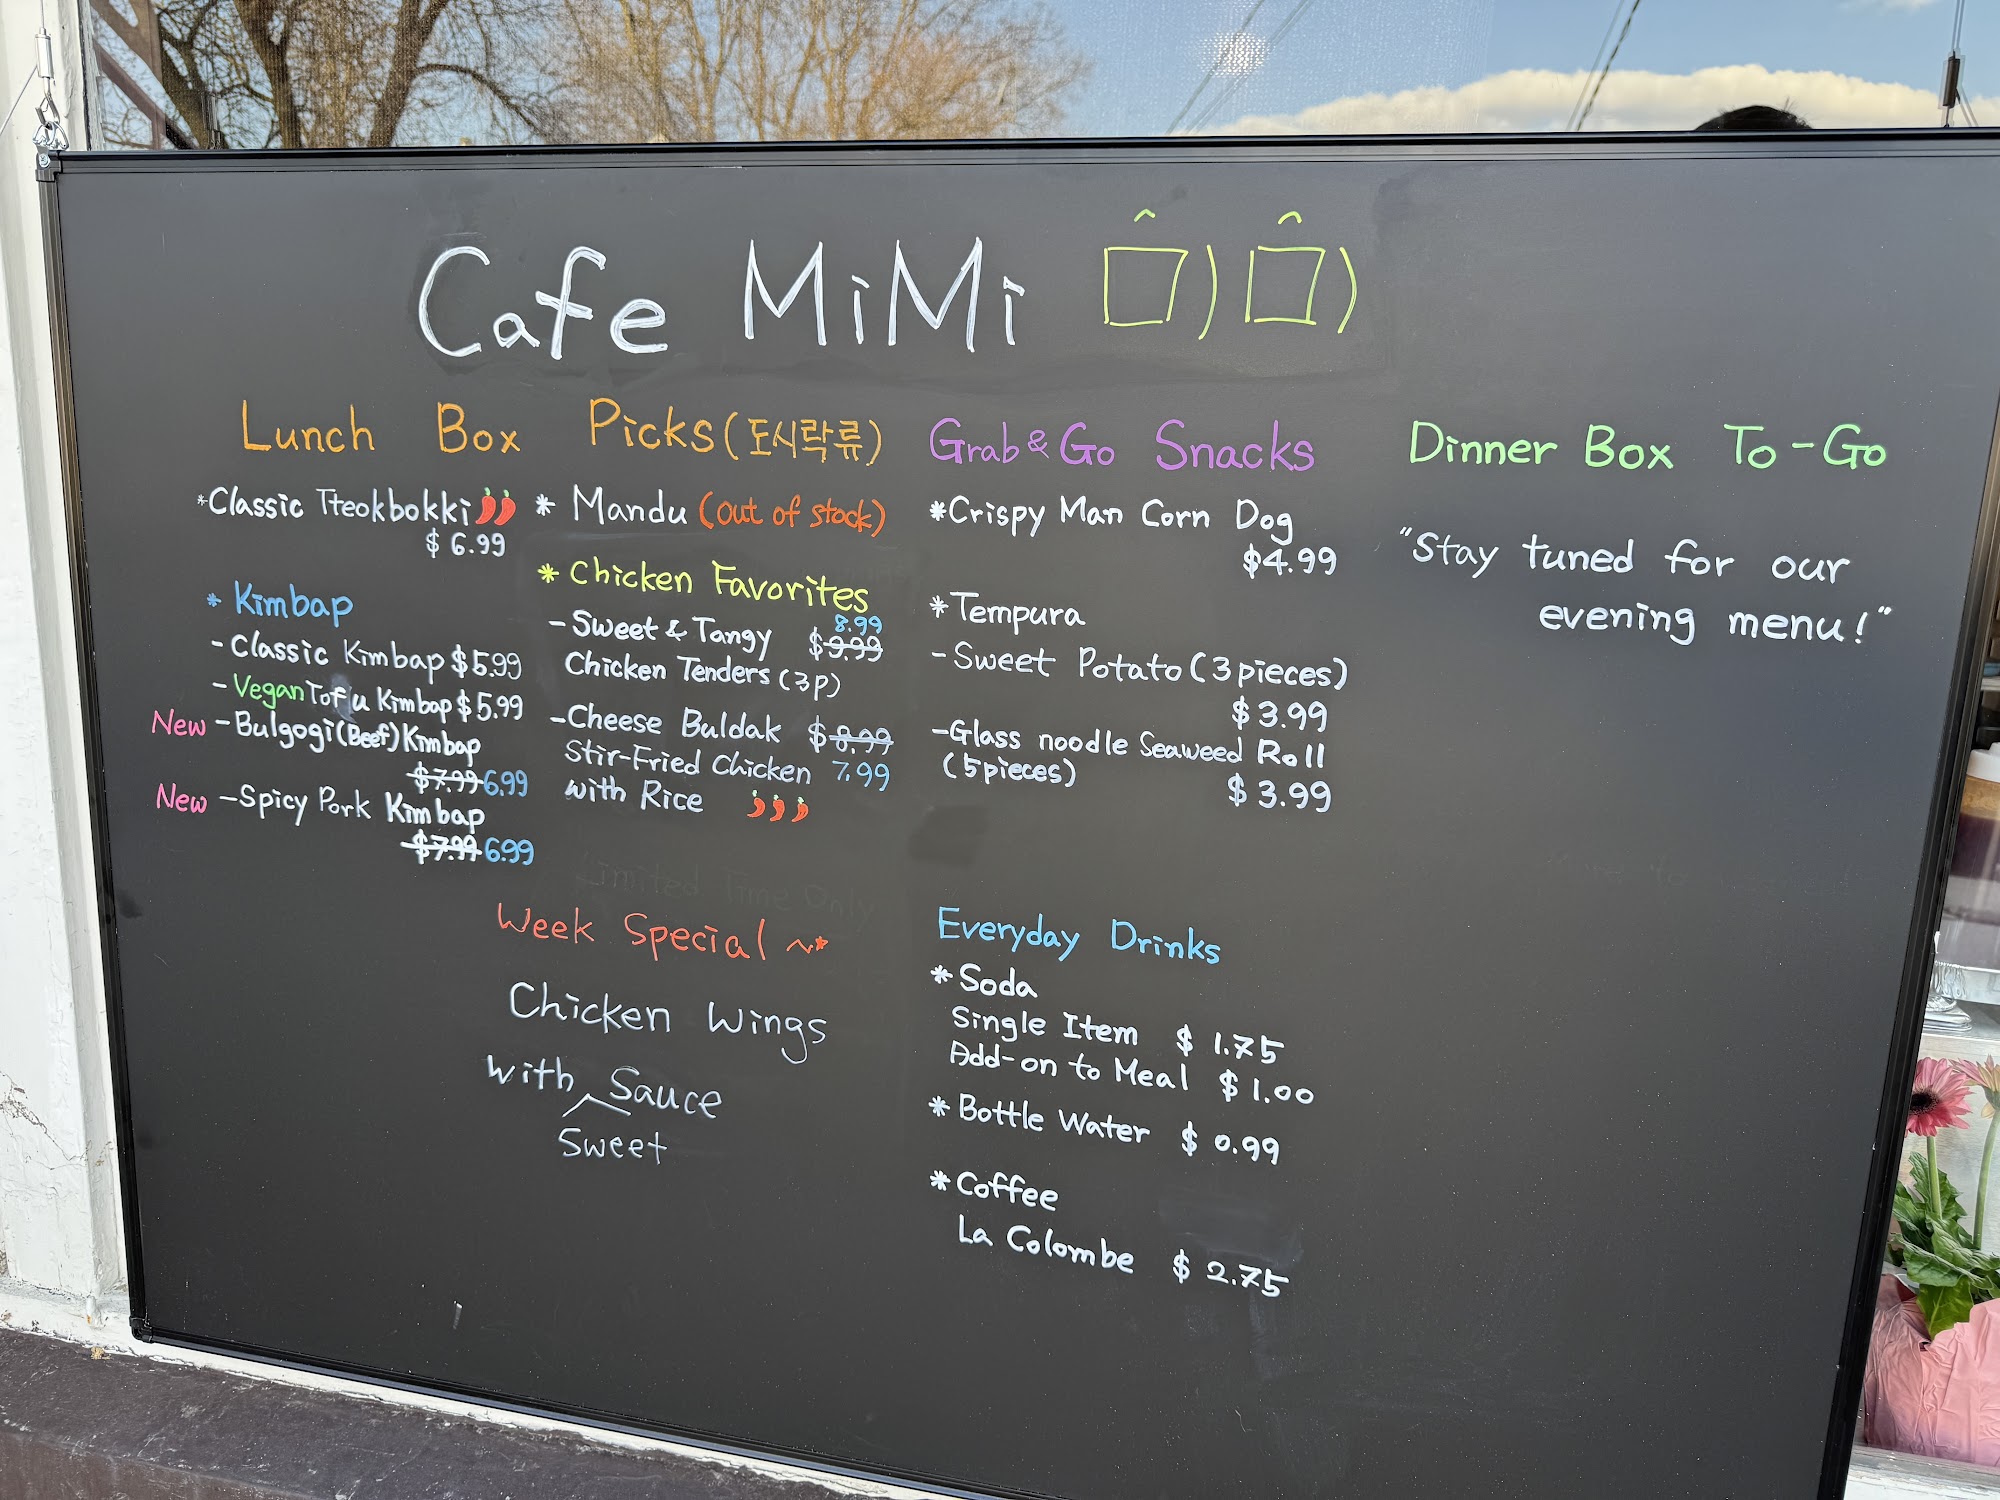 Cafe MiMi 미미
Lunch Box Picks (도시락류)
*Classic Tteokbokki
$6.99
* Kimbap
- Classic Kimbap $5.99
- Vegan Tofu Kimbap $5.99
New - Bulgogi (Beef) Kimbap
$7.99 6.99
New - Spicy Pork Kimbap
$7.99 6.99
* Mandu (out of stock)
* Chicken Favorites
8.99
- Sweet & Tangy $9.99
Chicken Tenders (3P)
- Cheese Buldak $8.99
Stir-Fried Chicken 7.99
with Rice
"Limited Time Only
Week Special ~*
Chicken Wings
with Sauce
Sweet
Grab & Go Snacks
*Crispy Man Corn Dog
$4.99
*Tempura
- Sweet Potato (3 pieces)
$3.99
- Glass noodle Seaweed Roll
(5 pieces)
$3.99
Everyday Drinks
* Soda
Single Item $1.75
Add-on to Meal $1.00
* Bottle Water $0.99
* Coffee
La Colombe $2.75
Dinner Box To-Go
"Stay tuned for our
evening menu!"